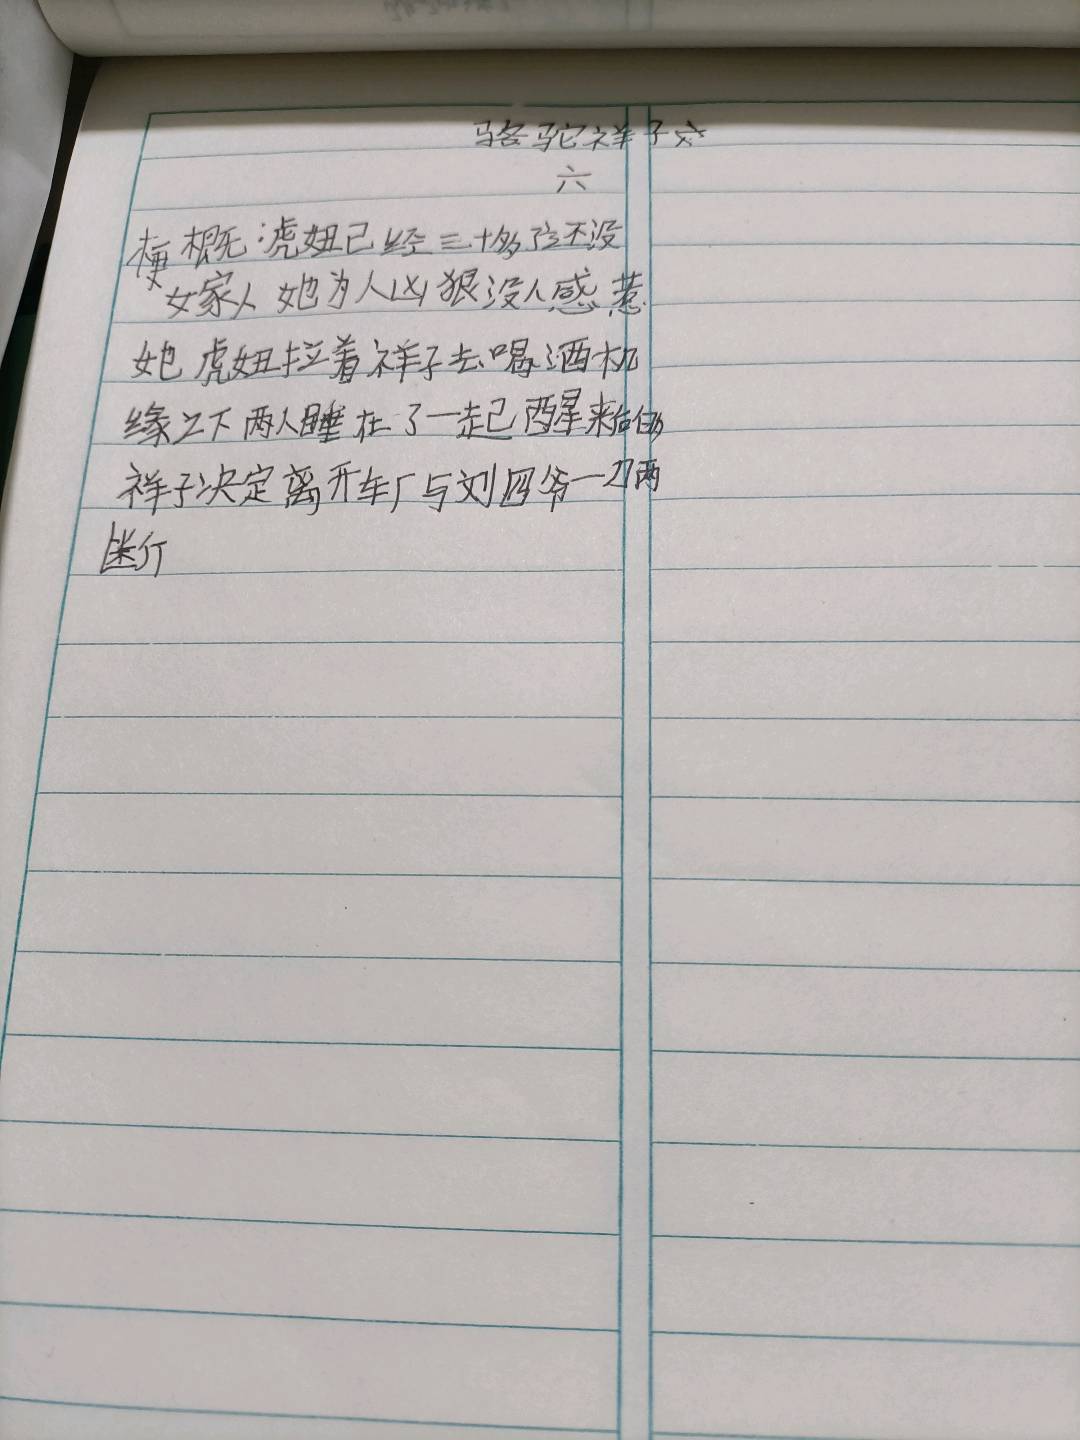 骆驼祥子
六
梗概:虎妞已经三十多了还没
嫁人 她为人凶狠没人感惹
她 虎妞拉着祥子去喝酒机
缘之下两人睡在了一起已 醒来后
祥子决定离开车厂与刘四爷一刀两
断